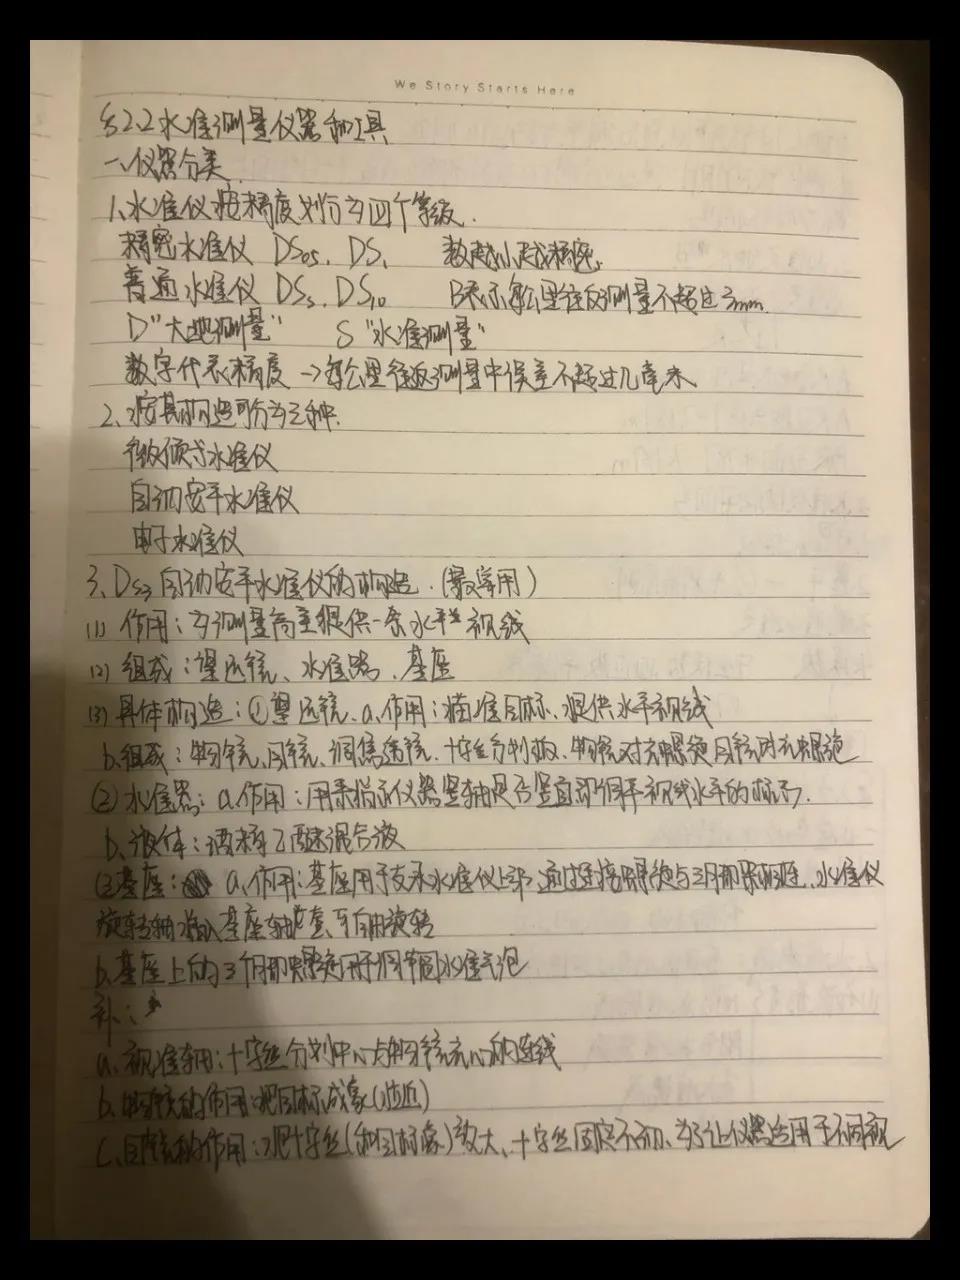 We Story Starts Here
§2.2 水准测量仪器和工具
一、仪器分类
1、水准仪按精度划分为四个等级.
精密水准仪 DS05、DS1 数越小越精密.
普通水准仪 DS3、DS10 表示每公里往返测量不超过3mm.
D"大地测量" S"水准测量"
数字代表精度 → 每公里往返测量中误差不超过几毫米
2、按其构造可分为三种.
微倾式水准仪
自动安平水准仪
电子水准仪
3、DS3 自动安平水准仪的构造.(最常用)
(1) 作用:为测量高差提供一条水平视线
(2) 组成:望远镜、水准器、基座
(3) 具体构造:①望远镜、a.作用:瞄准目标、提供水平视线
b.组成:物镜、目镜、调焦透镜、十字丝分划板、物镜对光螺旋 目镜对光螺旋
②水准器:a.作用:用来指示仪器竖轴是否竖直视线水平的标示.
b.液体:酒精乙醚混合液
③基座: a.作用:基座用于支承水准仪上部 通过连接螺旋与三脚架相连、水准仪
旋转轴插入基座轴套、可自由旋转
b.基座上的3个脚螺旋用于调节圆水准气泡
补:
a.视准轴:十字丝分划中心与物镜光心的连线
b.物镜的作用:把目标成象(拉近)
C.目镜的作用:把十字丝(和目标象)放大、十字丝固定不动、为了让仪器适用于不同视